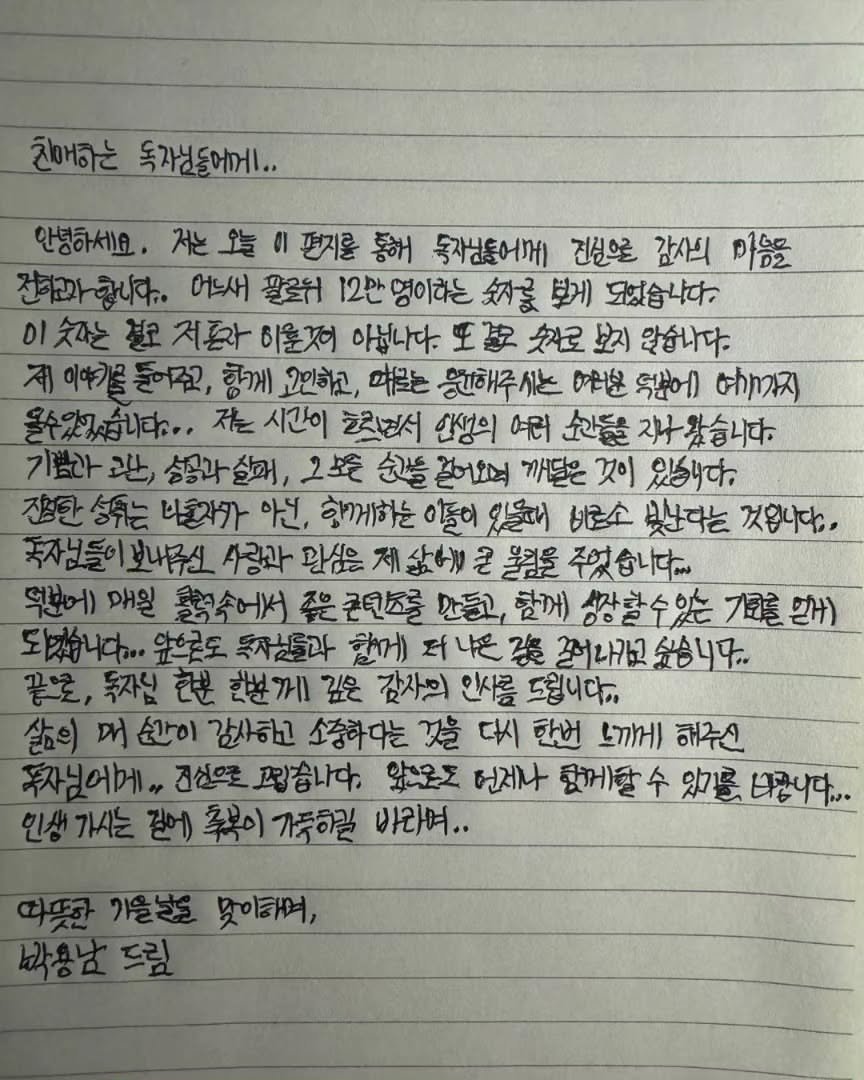 친애하는 독자님들에게..
안녕하세요. 저는 오늘 이 편지를 통해 독자님들에게 진심으로 감사의 마음을
전하고자 합니다.. 어느새 팔로워 12만 명이라는 숫자를 보게 되었습니다.
이 숫자는 결코 저 혼자 이룬것이 아닙니다. 또 결코 숫자로 보지 않습니다.
제 이야기를 들어주고, 함께 고민하고, 때로는 응원해주시는 여러분 덕분에 여기까지
올수있었습니다... 저는 시간이 흐르면서 인생의 여러 순간들을 지나 왔습니다.
기쁨과 고난, 성공과 실패, 그 모든 순간들을 걸어오며 깨달은 것이 있습니다.
진정한 성취는 나혼자가 아닌, 함께하는 이들이 있을때 비로소 빛난다는 것입니다..
독자님들이 보내주신 사랑과 관심은 제 삶에 큰 울림을 주었습니다...
덕분에 매일 활력속에서 좋은 콘텐츠를 만들고, 함께 성장할 수 있는 기회를 얻게
되었습니다... 앞으로도 독자님들과 함께 더 나은 길을 걸어나가고 싶습니다..
끝으로, 독자님 한분 한분께 깊은 감사의 인사를 드립니다..
삶의 매 순간이 감사하고 소중하다는 것을 다시 한번 느끼게 해주신
독자님에게.. 진심으로 고맙습니다. 앞으로도 언제나 함께할 수 있기를 바랍니다...
인생 가시는 길에 축복이 가득하길 바라며..
따뜻한 가을날을 맞이하며,
박용남 드림